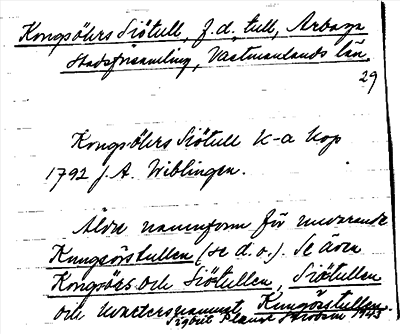 Kongsöhrs Siötull, f.d. tull, Arboga
Stadsförsamling, Västmanlands län.
29
Kongsöhrs Siötull K-a Kop
1792 J. A. Wiblingen.
Äldre namnform för nuvarande
Kungsörstullen (se d.o.). Se även
Kongsörs och Siötullen, Siötullen
och kvartersnamnet Kungörstullen.
1945